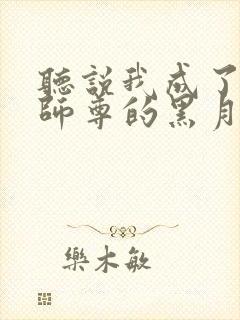 聽説我成了
師尊的黑月
樂木敏